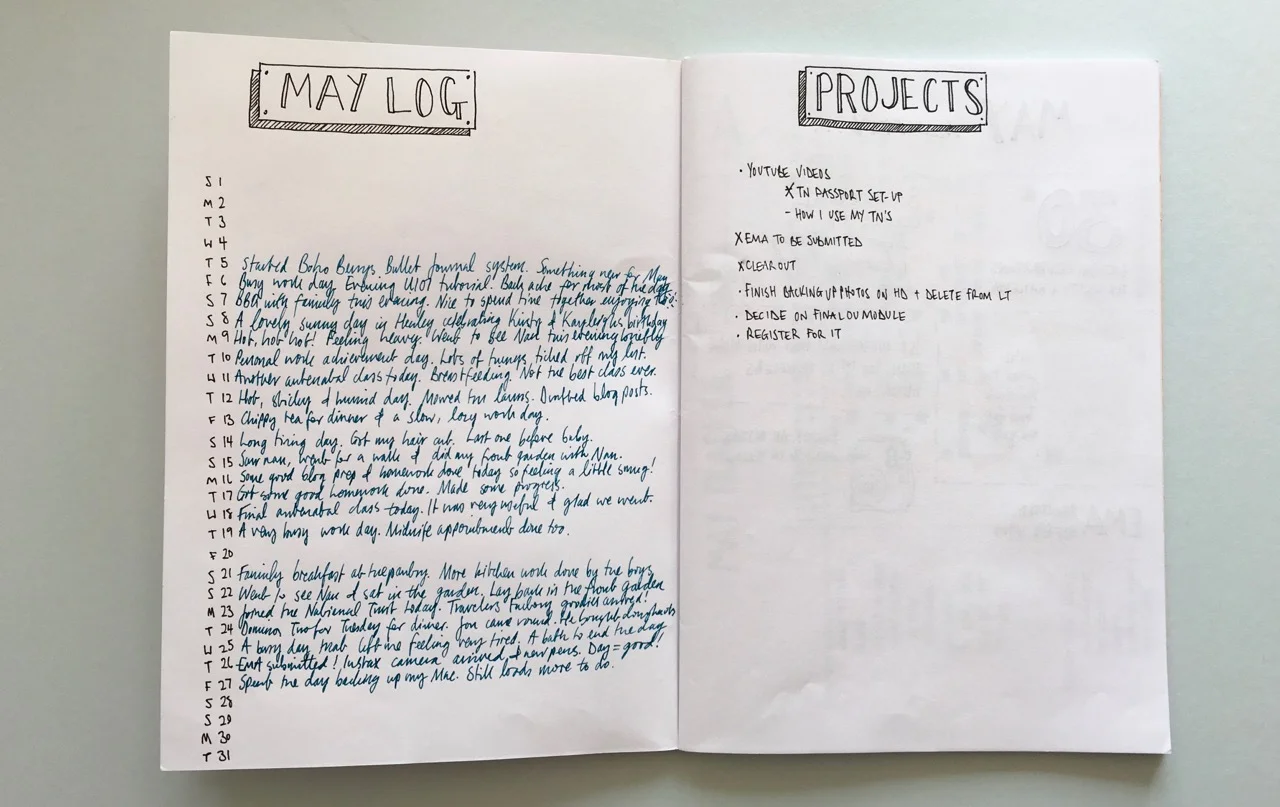 MAY LOG
S 1
M 2
T 3
W 4
T 5 Started Boho Berrys Bullet Journal system. Something new for May
F 6 Busy work day. Evening tutorial. Back ache for most of the day
S 7 BBQ with family this evening. Nice to spend time together enjoying
S 8 A lovely sunny day in Henley celebrating Kirsty & Kayleighs birthday
M 9 Hot, hot hot! Feeling heavy. Went to see Nan this evening briefly
T 10 Personal work achievement day. Lots of things ticked off my list.
W 11 Another antenatal class today. Breastfeeding. Not the best class ever.
T 12 Hot, sticky & humid day. Mowed the lawns. Drafted blog posts.
F 13 Chippy tea for dinner & a slow, lazy work day.
S 14 Long tiring day. Got my hair cut. Last one before baby.
S 15 Saw nan, went for a walk & did my front garden with Nan.
M 16 Some good blog prep & homework done today so feeling a little smug!
T 17 Got some good homework done. Made some progress.
W 18 Final antenatal class today. It was very useful & glad we went.
T 19 A very busy work day. Midwife appointment done too.
F 20
S 21 Family breakfast at the pantry. More kitchen work done by the boys
S 22 Went to see Nan & sat in the garden. Lay bark in the front garden
M 23 Joined the National Trust today. Travelers goodies arrived!
T 24 Dominos Two for Tuesday for dinner. Jon came round. He bought doughnuts
W 25 A busy day that left me feeling very tired. A bath to end the day
T 26 EMA submitted! Instax camera arrived & new pens. Day = good!
F 27 Spent the day backing up my Mac. Still loads more to do.
S 28
S 29
M 30
T 31
PROJECTS
· YOUTUBE VIDEOS
X TN PASSPORT SET-UP
- HOW I USE MY TN'S
X EMA TO BE SUBMITTED
X CLEAR OUT
· FINISH BACKING UP PHOTOS ON HD + DELETE FROM LT
· DECIDE ON FINAL OU MODULE
· REGISTER FOR IT